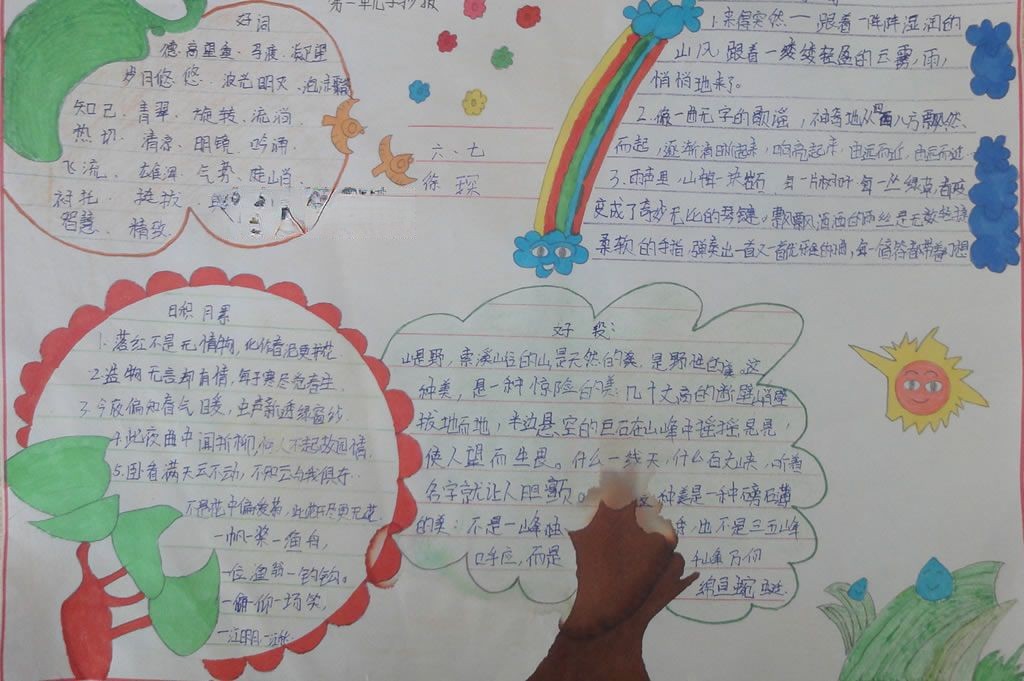 第一单元手抄报
好词
德高望重、孕育、凝望
岁月悠悠、波光明灭、泡沫聚
知己、青翠、旋转、流淌
热切、清凉、明镜、吟诵、
飞流、雄浑、气势、陡峭
衬托、挺拔、
智慧、精致、
六、七
徐琛
1.来得突然——跟着一阵阵湿润的
山风,跟着一缕缕轻盈的云雾,雨,
悄悄地来了。
2.像一曲无字的歌谣,神奇地从四面八方飘然
而起,逐渐清晰起来,响亮起来,由远而近,由远而近
3.雨声里,山中一块岩石 每一片树叶 每一丛绿草,都
变成了奇妙无比的琴键。飘飘洒洒的雨丝是无数轻捷
柔软的手指,弹奏出一首又一首的,每一个音符都带着幻想
日积月累
1.落红不是无情物,化作春泥更护花
2.造物无言却有情,每于寒尽觉春生
3.今夜偏知春气暖,虫声新透绿窗纱
4.此夜曲中闻折柳,何人不起故园情
5.卧看满天云不动,不知云与我俱东
不是花中偏爱菊,此花开尽更无花
一帆一桨一渔舟,
一位渔翁一钓钩。
一俯一仰一场笑,
一江明月一江秋
好 段:
山是野,索溪峪的山,是天然的美,是野性的美。这
种美,是一种惊险的美:几十丈高的断壁峭壁
拔地而地,半边悬空的巨石在山峰中摇摇晃晃,
使人望而生畏。什么一线天,什么百丈峡,听着
名字就让人胆颤。这种美是一种磅礴
的美:不是一峰独 ,也不是三五峰
呼应,而是 千峰万仞
绵亘蜿蜒